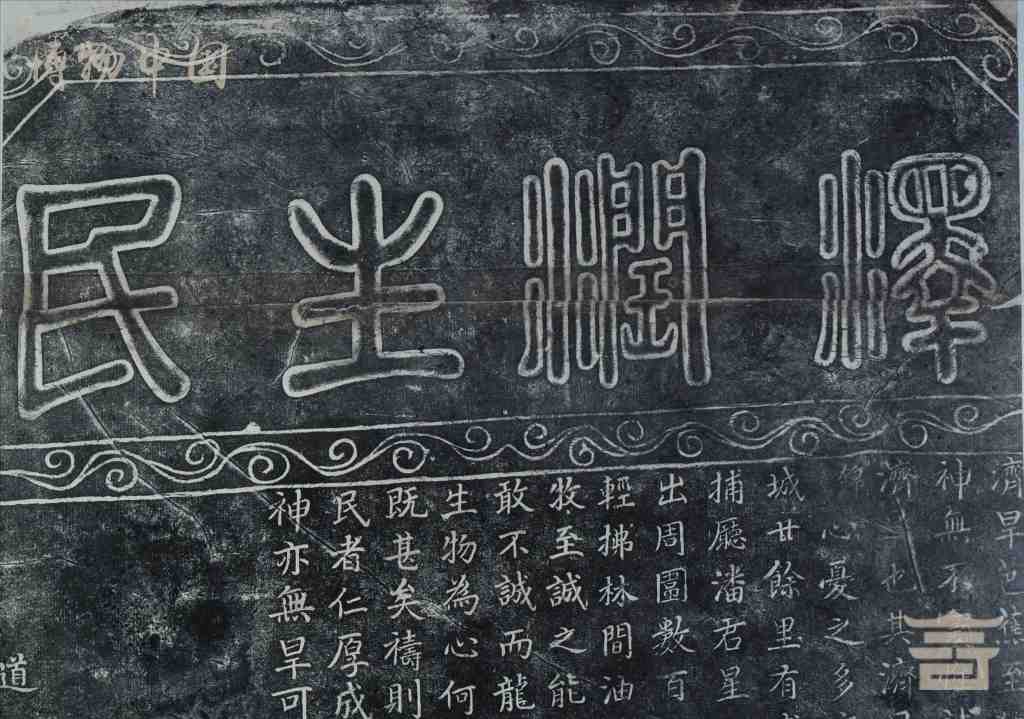 博物中国
澤潤生民
濟旱邑舊至
神無不
濟也其濟
心憂之多
城廿餘里有
捕廳潘君星
出周圍數百
輕拂林間油
牧至誠之能
敢不誠而龍
生物為心何
既甚矣禱則
民者仁厚成
神亦無旱可
道